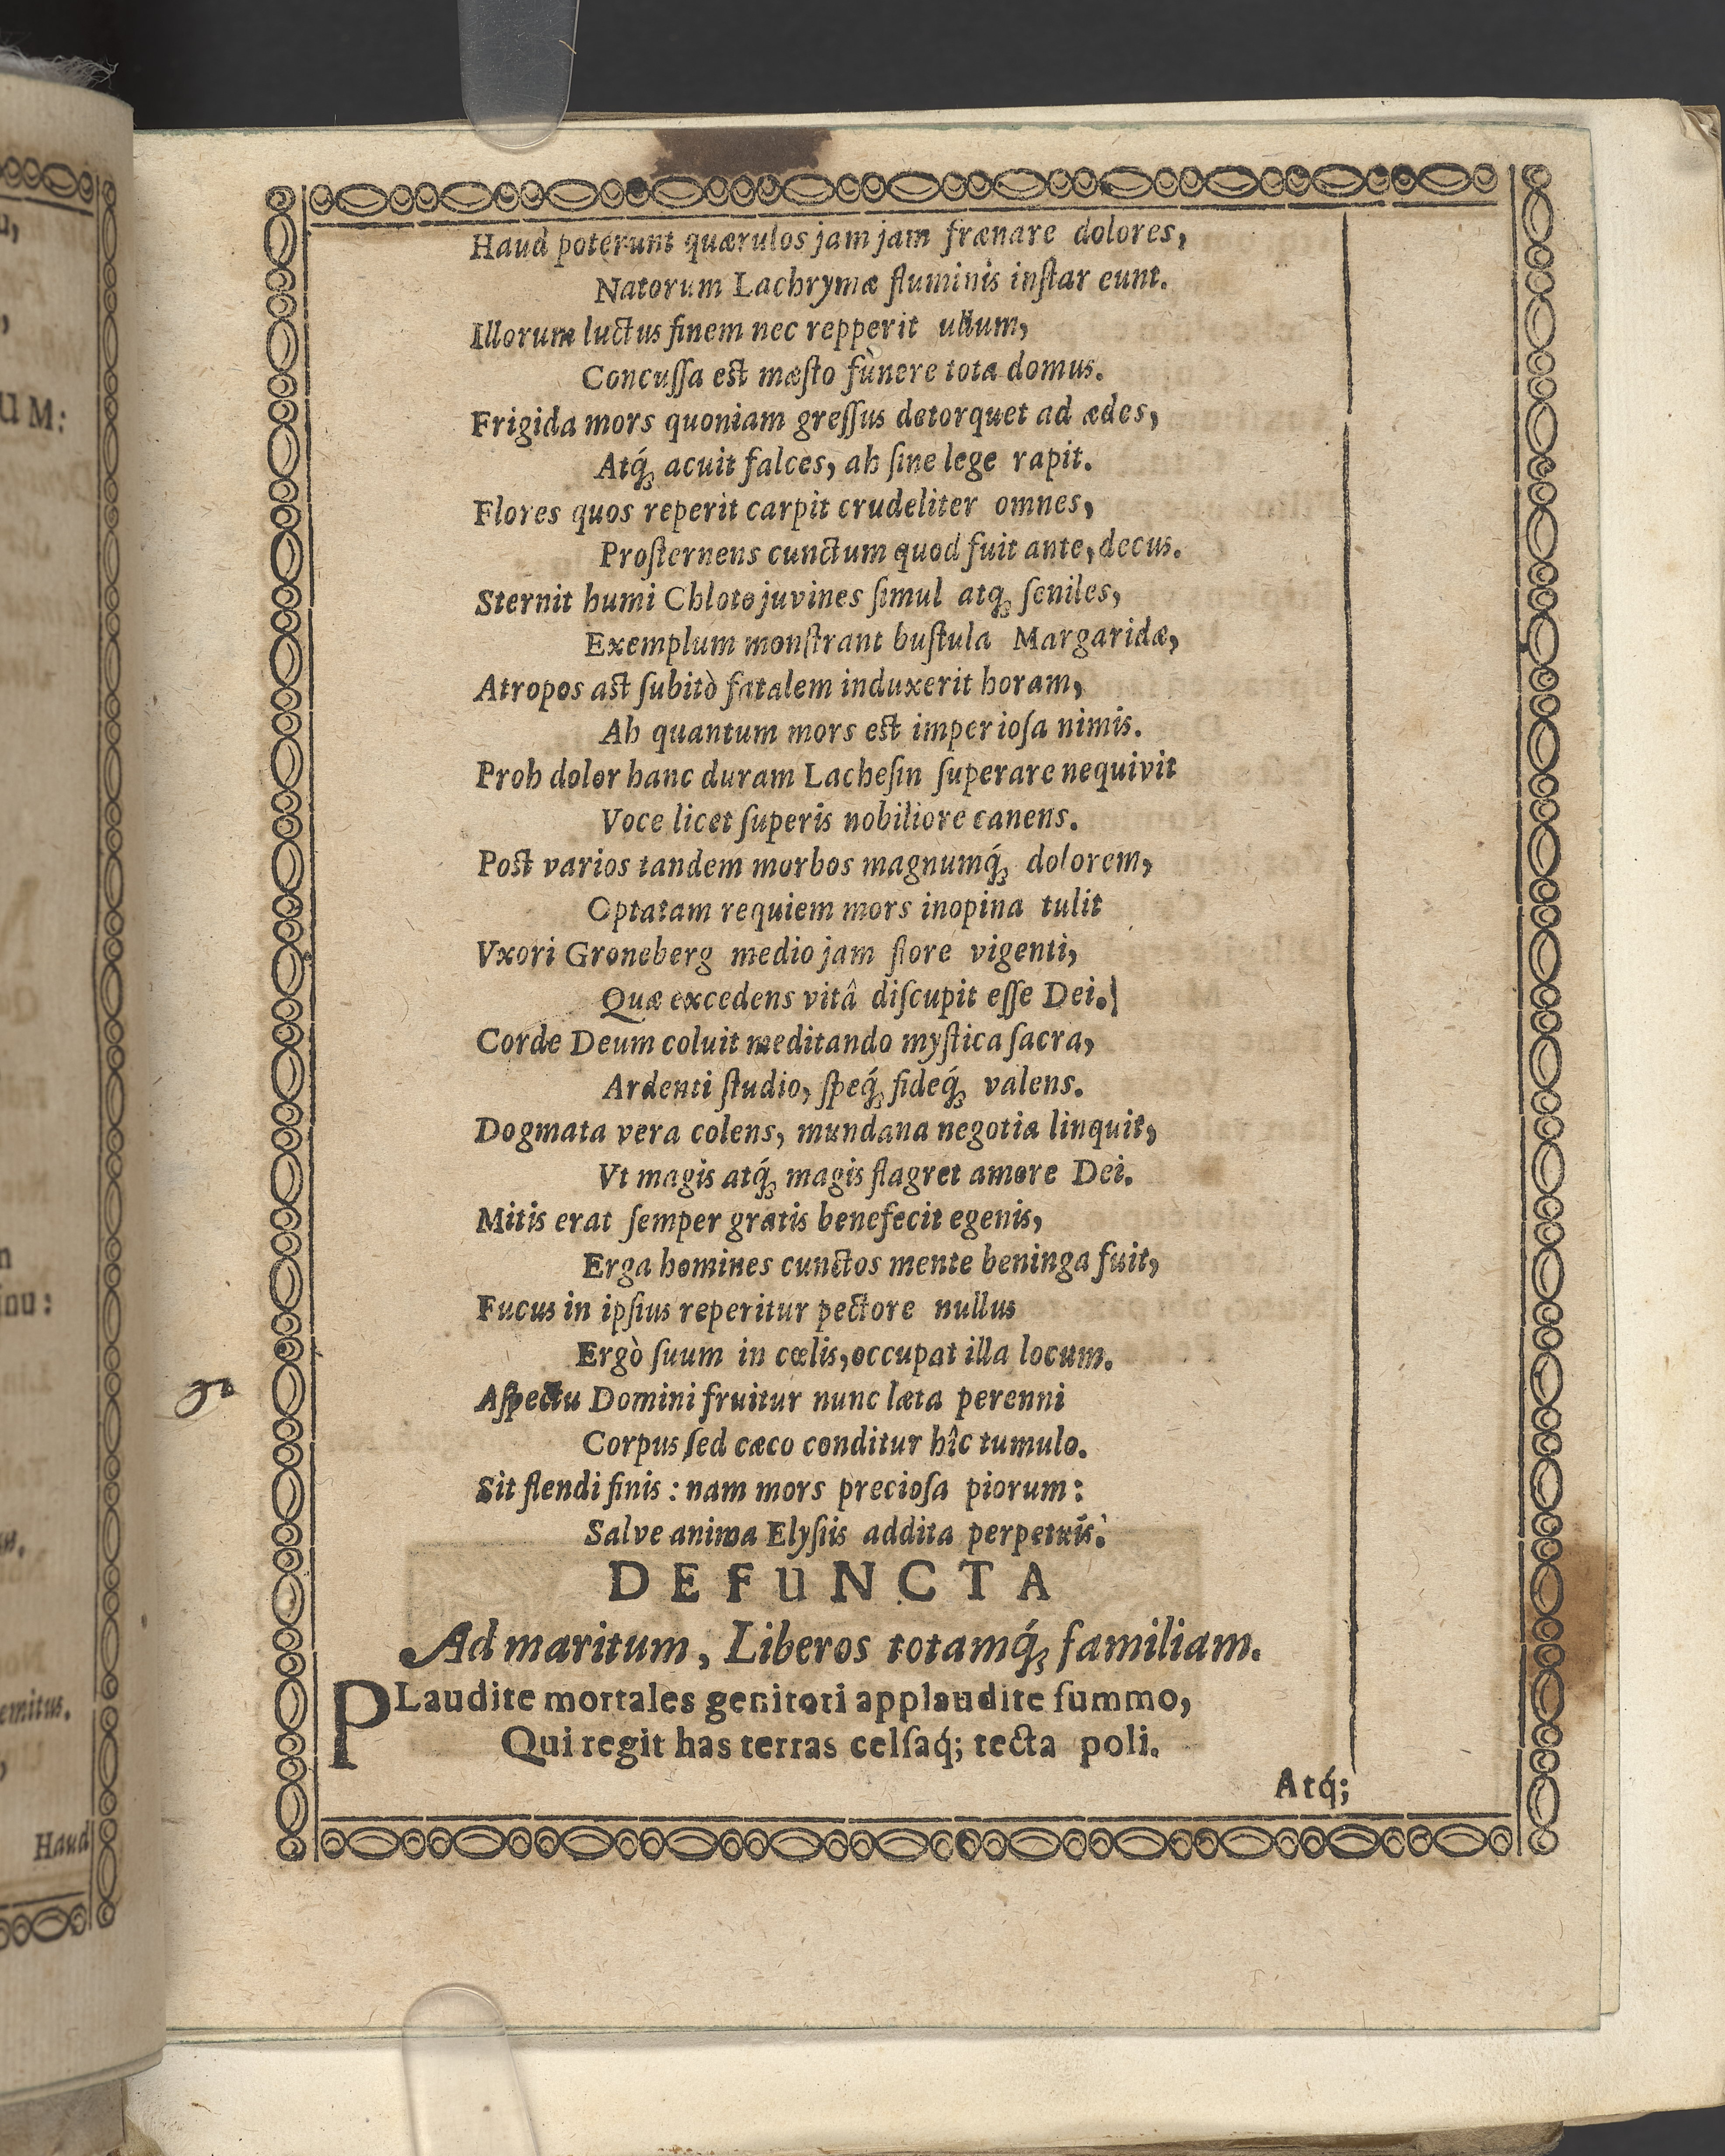 Haud poterunt quærulos jam jam frænare dolores,
Natorum Lachrymæ fluminis inſtar eunt.
Illorum luctus finem nec repperit ullum,
Concuſſa est mæſto funere tota domus.
Frigida mors quoniam greſſus detorquet ad ædes,
Atq́ꝫ acuit falces, ah ſine lege rapit.
Flores quos reperit carpit crudeliter omnes,
Proſternens cunctum quod fuit ante, decus.
Sternit humi Chloto juvines ſimul atqꝫ ſeniles,
Exemplum monſtrant buſtula Margaridæ,
Atropos ast ſubitò fatalem induxerit horam,
Ah quantum mors est imperioſa nimis.
Proh dolor hanc duram Lacheſin ſuperare nequivit
Voce licet ſuperis nobiliore canens.
Post varios tandem morbos magnumq́ꝫ dolorem,
Optatam requiem mors inopina tulit
Vxori Groneberg medio jam flore vigenti,
Quæ excedens vitâ diſcupit eſſe Dei.
Corde Deum coluit meditando myſtica ſacra,
Ardenti ſtudio, ſpeq́ꝫ fideq́ꝫ valens.
Dogmata vera colens, mundana negotia linquit,
Vt magis atq́ꝫ magis flagret amore Dei.
Mitis erat ſemper gratis benefecit egenis,
Erga homines cunctos mente beninga fuit,
Fucus in ipſius reperitur pectore nullus
Ergò ſuum in cœlis, occupat illa locum.
Aſpectu Domini fruitur nunc læta perenni
Corpus ſed cæco conditur hîc tumulo.
Sit flendi finis : nam mors precioſa piorum :
Salve anima Elyſiis addita perpetuis.
DEFUNCTA
Ad maritum, Liberos totamq́ꝫ familiam.
PLaudite mortales genitori applaudite ſummo,
Qui regit has terras celſaq́; tecta poli.
Atq́;
UM:
inu:
emitus.
Haud